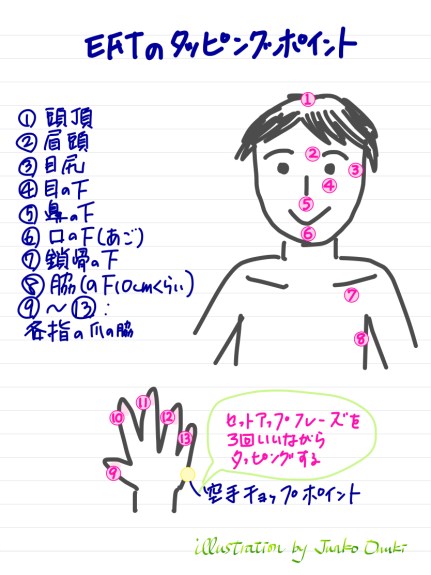 EFTのタッピングポイント
① 頭頂
② 眉頭
③ 目尻
④ 目の下
⑤ 鼻の下
⑥ 口の下(あご)
⑦ 鎖骨の下
⑧ 脇(の下10cmくらい)
⑨〜⑬:
各指の爪の脇
①
②
③
④
⑤
⑥
⑦
⑧
⑪
⑩
⑫
⑬
⑨
セットアップフレーズを
3回いいながら
タッピングする
空手チョップポイント
illustration by Junko Onuki